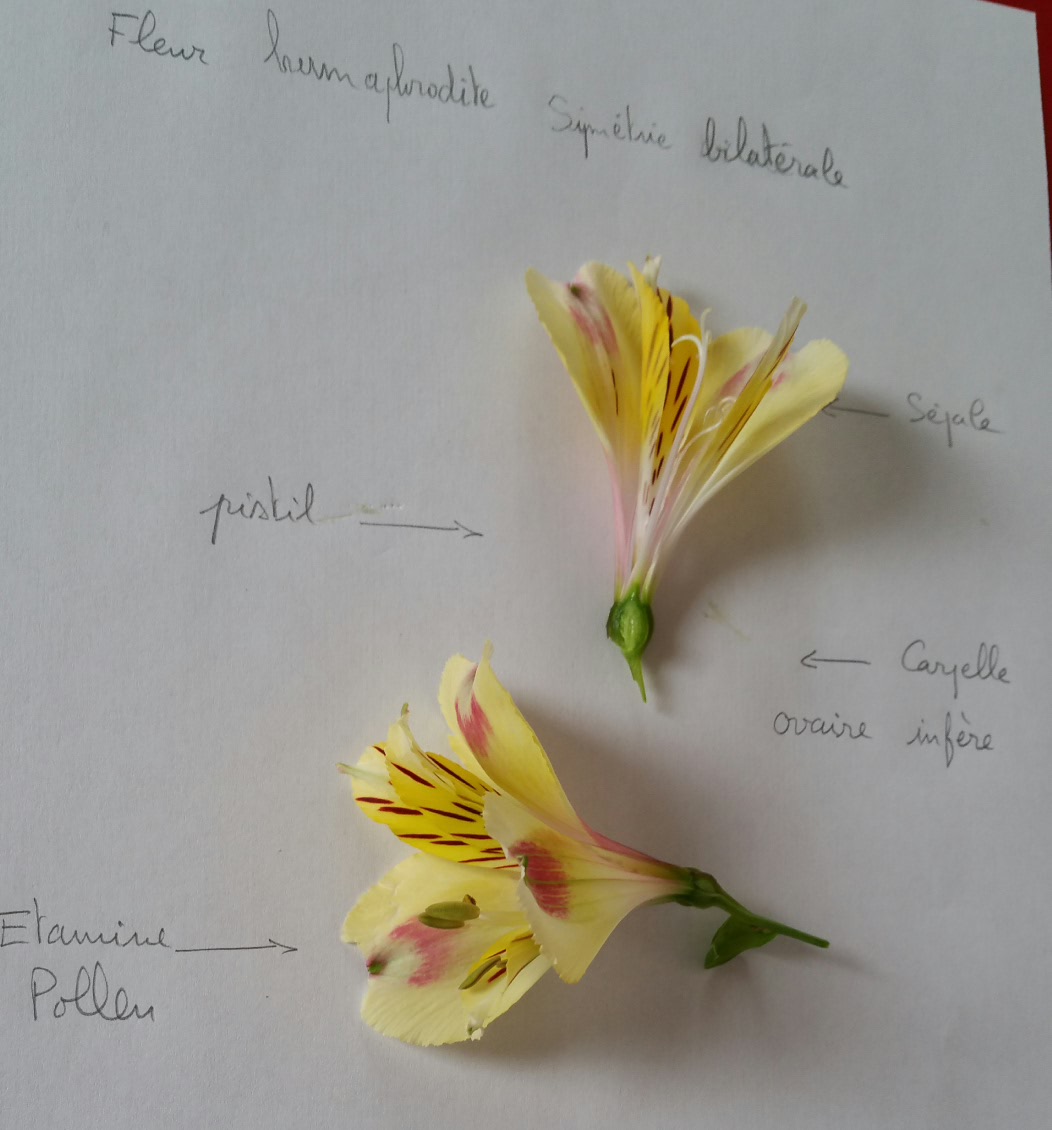 Fleur hermaphrodite Symétrie bilatérale
Sépale
pistil
Carpelle
ovaire infère
Etamine
Pollen